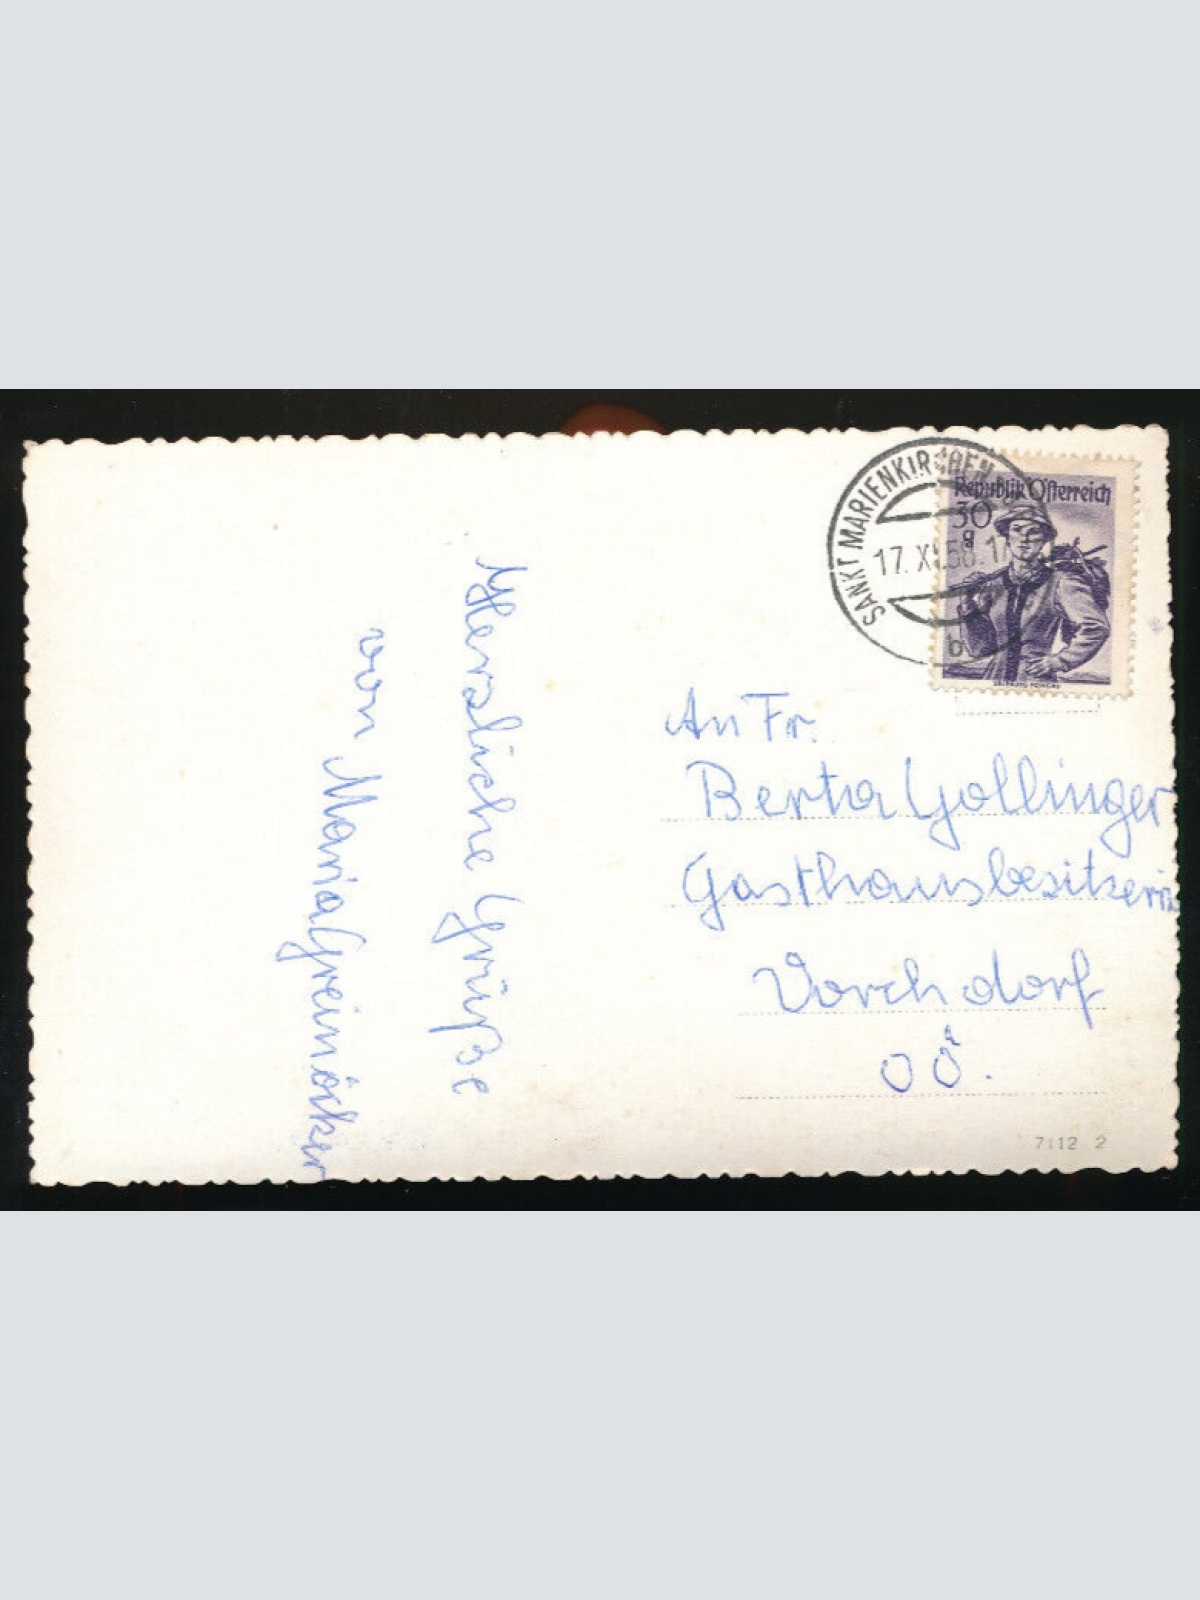 Herzliche Grüße
von Maria Greinöcker
SANKT MARIENKIRCHEN
17. XI. 56. 17
b
Republik Österreich
30
g
SALZBURG PONGAU
An Fr.
Berta Gollinger
Gasthausbesitzerin
Vorchdorf
OÖ.
7112 2